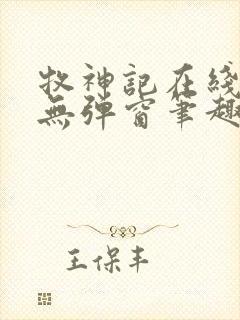 牧神記在綫
無彈窗筆趣
王保丰